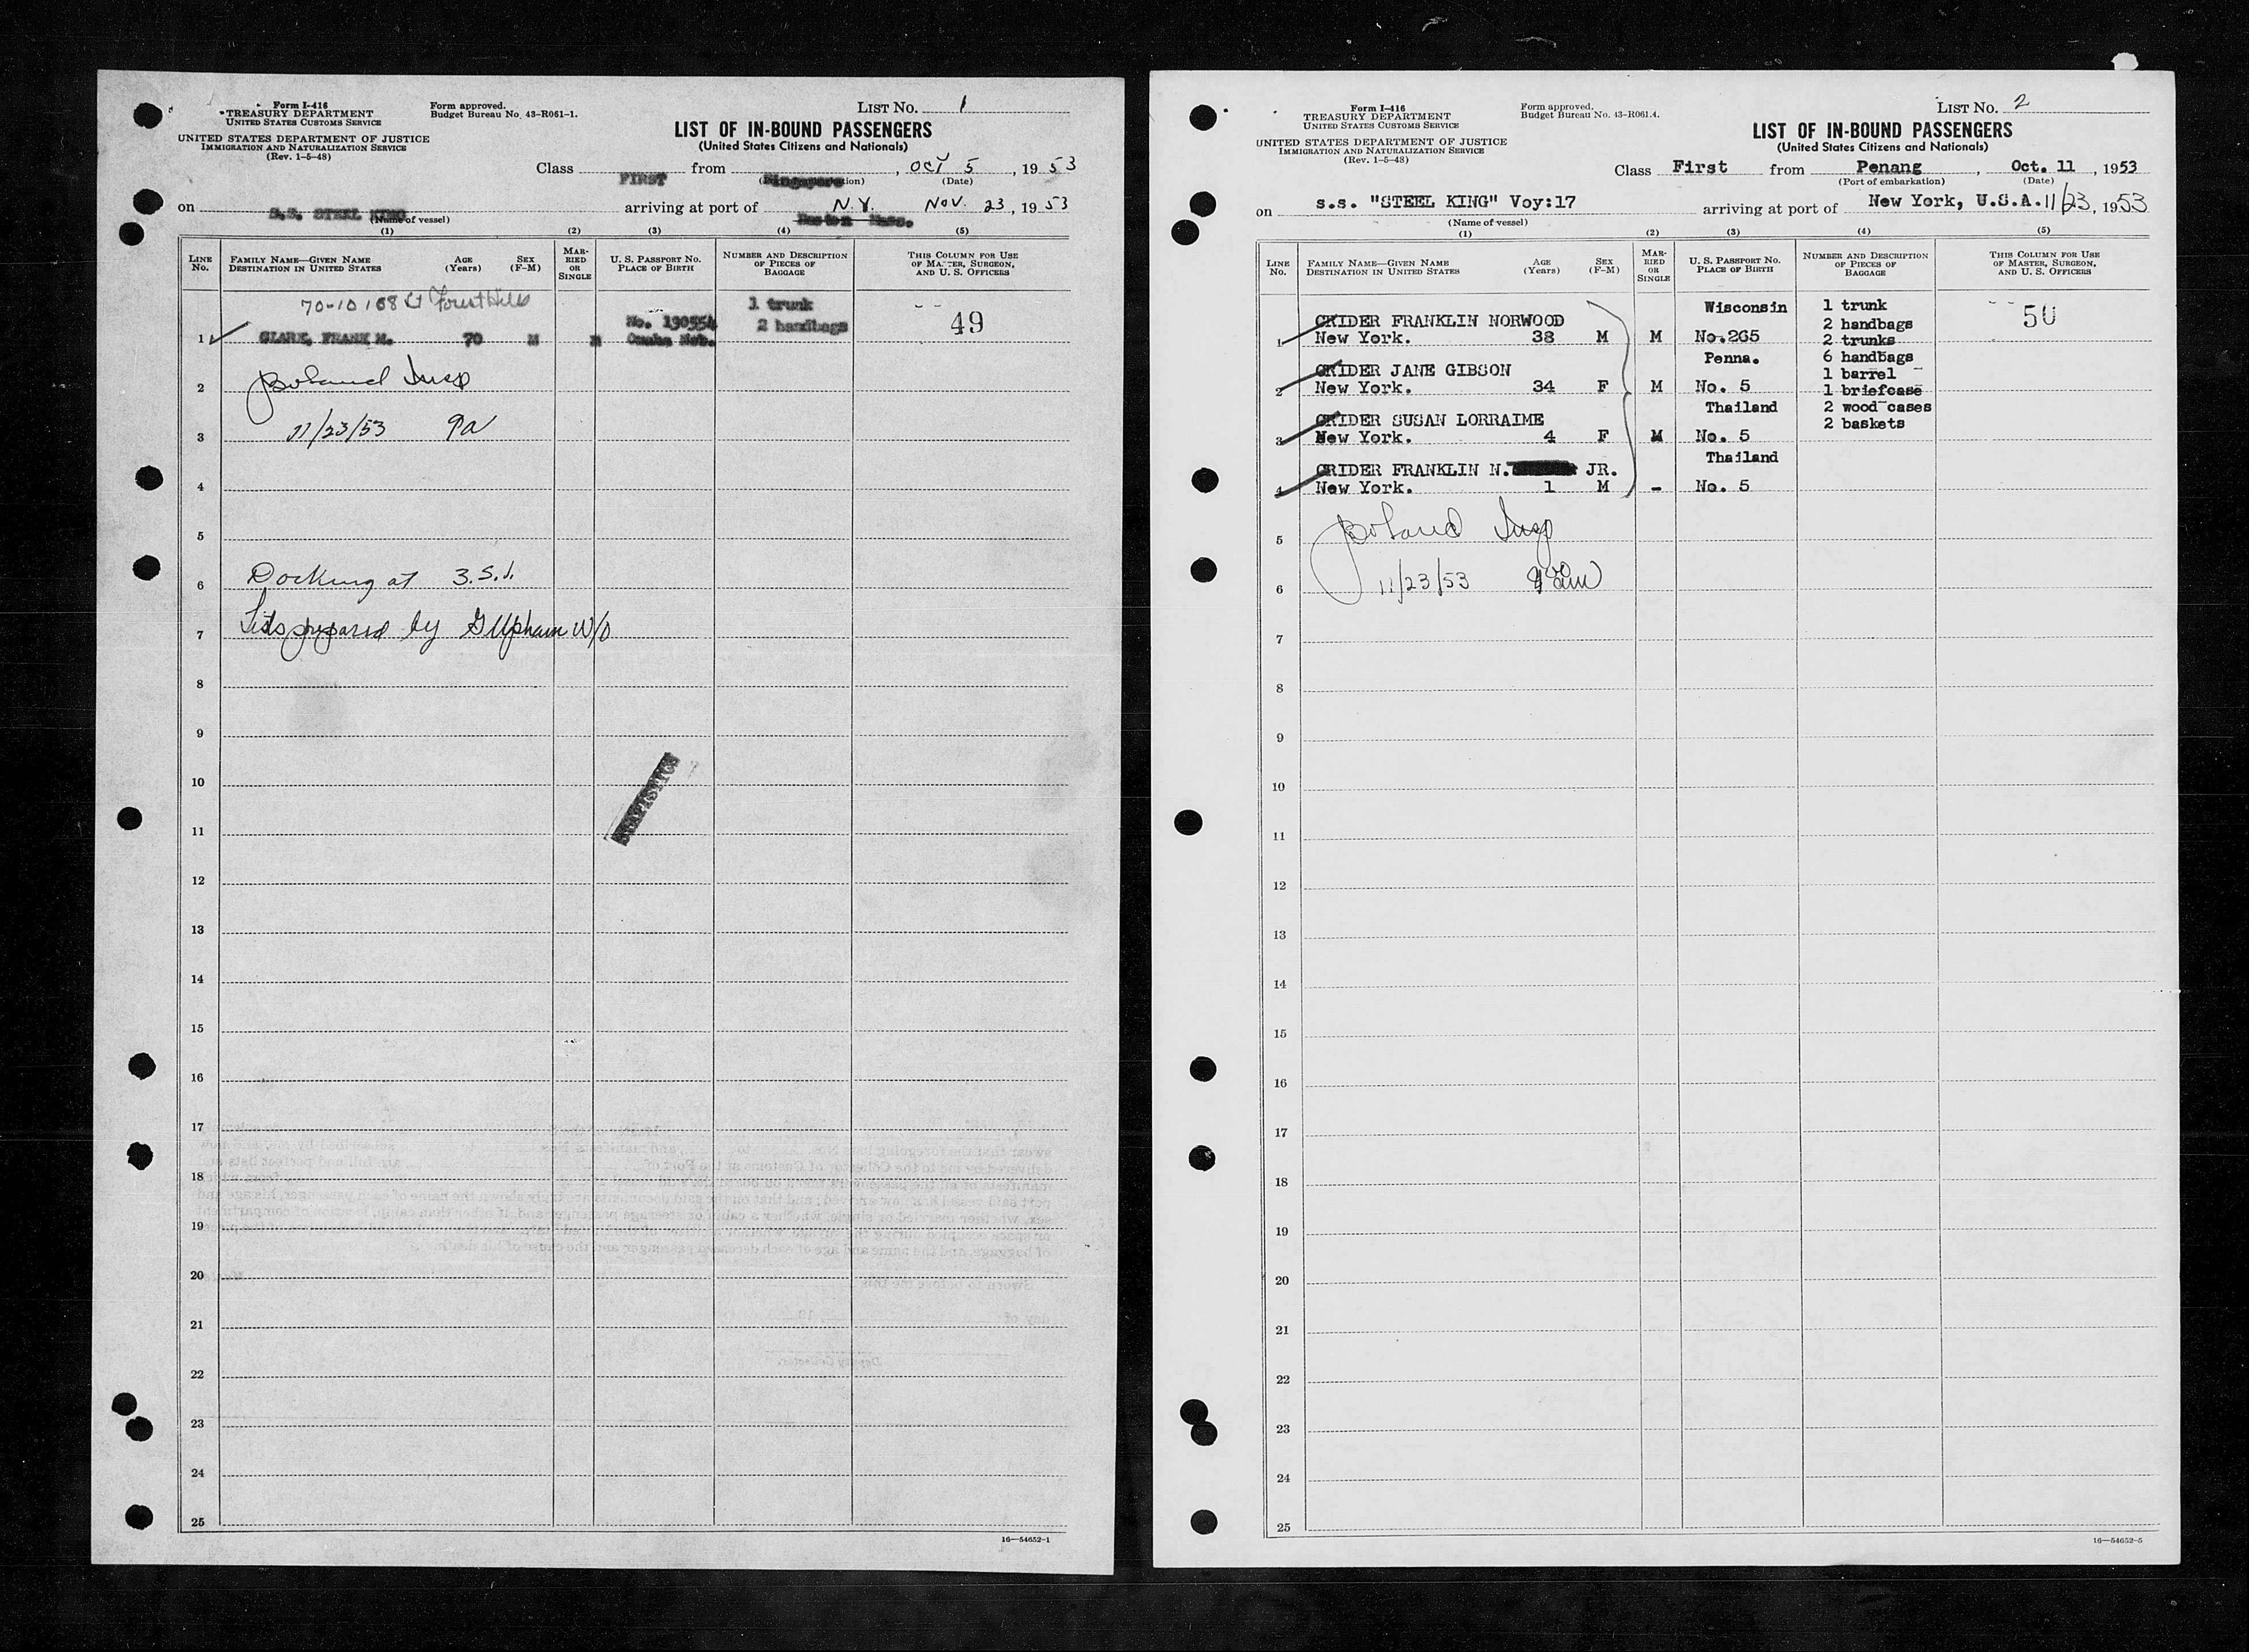 Form I-416
TREASURY DEPARTMENT
UNITED STATES CUSTOMS SERVICE
UNITED STATES DEPARTMENT OF JUSTICE
IMMIGRATION AND NATURALIZATION SERVICE
(Rev. 1-5-48)
Form approved.
Budget Bureau No. 43-R061-1.
LIST NO. 1
LIST OF IN-BOUND PASSENGERS
(United States Citizens and Nationals)
Class FIRST from Singapore, OCT 5, 1953
(Date)
on S.S. STEEL KING arriving at port of N.Y. NOV. 23, 1953
(Name of vessel) Boston Mass.
(1) (2) (3) (4) (5)
LINE NO.
FAMILY NAME—GIVEN NAME
DESTINATION IN UNITED STATES
AGE (Years)
SEX (F-M)
MARRIED OR SINGLE
U. S. PASSPORT NO.
PLACE OF BIRTH
NUMBER AND DESCRIPTION OF PIECES OF BAGGAGE
THIS COLUMN FOR USE OF MASTER, SURGEON, AND U. S. OFFICERS
70-10 108 St Forest Hills 1 trunk
No. 130554 2 handbags 49
1 CLARK, FRANK M. 70 M M Omaha Neb.
2 Boland Insp
3 11/23/53 9a
4
5
6 Docking at 3.S.I.
7 Lists prepared by G Upham W/O
8
9
10
STATISTICS
11
12
13
14
15
16
17
18
19
20
21
22
23
24
25
16—54652-1
Form I-416
TREASURY DEPARTMENT
UNITED STATES CUSTOMS SERVICE
UNITED STATES DEPARTMENT OF JUSTICE
IMMIGRATION AND NATURALIZATION SERVICE
(Rev. 1-5-48)
Form approved.
Budget Bureau No. 43-R061.4.
LIST NO. 2
LIST OF IN-BOUND PASSENGERS
(United States Citizens and Nationals)
Class First from Penang, Oct. 11, 1953
(Port of embarkation) (Date)
on s.s. "STEEL KING" Voy:17 arriving at port of New York, U.S.A. 11/23, 1953
(Name of vessel)
(1) (2) (3) (4) (5)
LINE NO.
FAMILY NAME—GIVEN NAME
DESTINATION IN UNITED STATES
AGE (Years)
SEX (F-M)
MARRIED OR SINGLE
U. S. PASSPORT NO.
PLACE OF BIRTH
NUMBER AND DESCRIPTION OF PIECES OF BAGGAGE
THIS COLUMN FOR USE OF MASTER, SURGEON, AND U. S. OFFICERS
Wisconsin 1 trunk 50
CRIDER FRANKLIN NORWOOD 2 handbags
1 New York. 38 M M No.265 2 trunks
Penna. 6 handbags
CRIDER JANE GIBSON 1 barrel
2 New York. 34 F M No. 5 1 briefcase
Thailand 2 wood cases
CRIDER SUSAN LORRAIME 2 baskets
3 New York. 4 F M No. 5
Thailand
CRIDER FRANKLIN N. JR.
4 New York. 1 M - No. 5
5 Boland Insp
6 11/23/53 9 00 am
7
8
9
10
11
12
13
14
15
16
17
18
19
20
21
22
23
24
25
16—54652-5